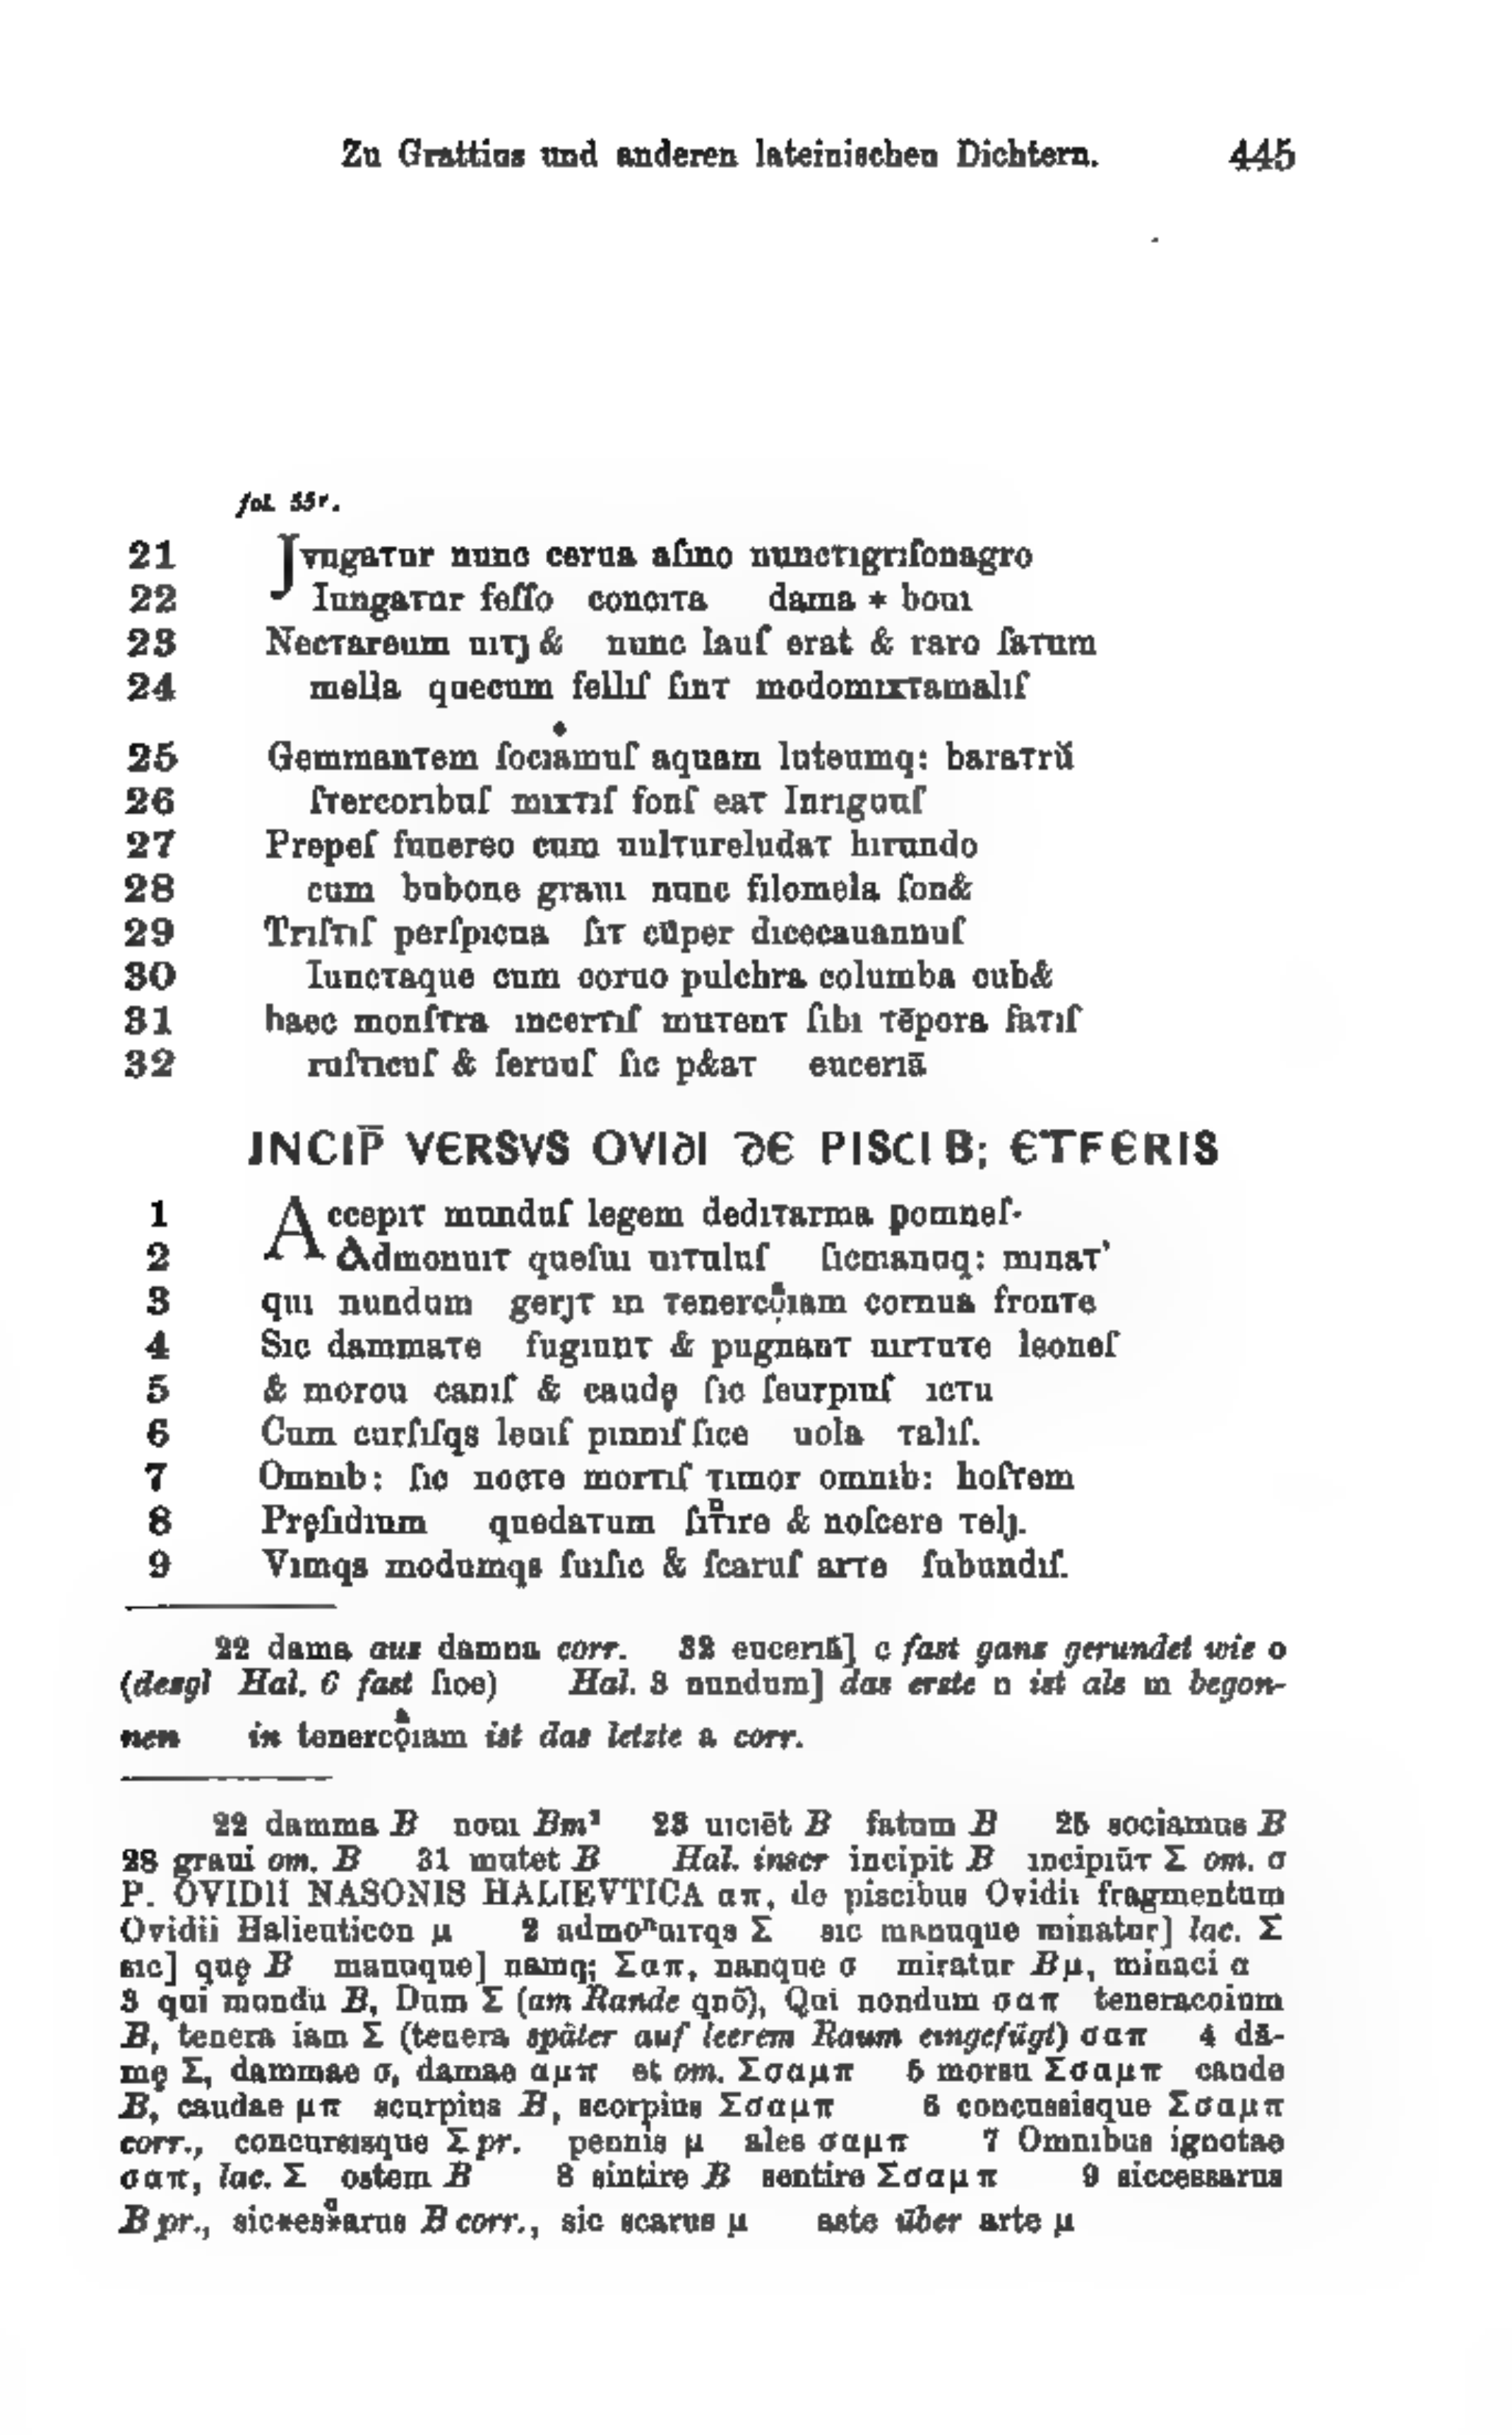 Zu Grattius und anderen lateinischen Dichtern. 445
fol. 55r.
21 Jvngatur nunc cerua aſino nunctıgrıſonagro
22 Iungatur feſſo concıta dama * bouı
23 Nectareum uıtȷ & nunc lauſ erat & raro ſatum
24 mella quecum fellıſ ſint modomıxtamalıſ
25 Gemmantem ſocıamuſ aquam luteumq: baratrŭ
26 ſtercorıbuſ mıxtıſ fonſ eat Inrıguuſ
27 Prepeſ funereo cum uultureludat hırundo
28 cum bubone grauı nunc fılomela ſon&
29 Trıſtıſ perſpıcua ſıt cūper dıcecauannuſ
30 Iunctaque cum coruo pulchra columba cub&
31 haec monſtra ıncertıſ mutent ſıbı tēpora fatıſ
32 ruſtıcuſ & ſeruuſ ſıc p&at eucerıā
JNCIP̅ VERSVS OVIDI DE PISCIB; ETFERIS
1 Accepıt munduſ legem dedıtarma pomneſ·
2 Admonuıt queſuı uıtuluſ ſıcmanuq: mınat’
3 quı nundum gerȷt ın tenercọͣıam cornua fronte
4 Sıc dammate fugıunt & pugnant uırtute leoneſ
5 & morou canıſ & caudę ſıc ſeurpıuſ ıctu
6 Cum curſıſqs leuıſ pınnıſ ſıce uola talıſ.
7 Omnıb: ſıc nocte mortıſ tımor omnıb: hoſtem
8 Pręſıdıum quedatum ſıtⁿıre & noſcere telȷ.
9 Vımqs modumqs ſuıſıc & ſcaruſ arte ſubundıſ.
22 dama aus damna corr. 32 eucerıā] c fast ganz gerundet wie o
(desgl Hal. 6 fast ſıoe) Hal. 3 nundum] das erste n ist als m begon-
nen in tenercọͣıam ist das letzte a corr.
22 damma B nouı Bm¹ 23 uıcıēt B fatum B 25 sociamus B
28 graui om. B 31 mutet B Hal. inscr incipit B ıncipıūt Σ om. σ
P. OVIDII NASONIS HALIEVTICA απ, de piscibus Ovidii fragmentum
Ovidii Halieuticon μ 2 admoⁿuıtqs Σ sic manuque minatur] lac. Σ
sıc] quę B manuque] namq; Σαπ, nanque σ miratur Bμ, minaci α
3 qui mundu B, Dum Σ (am Rande qnō), Qui nondum σαπ teneracoium
B, tenera iam Σ (tenera später auf leerem Raum eingefügt) σαπ 4 dā-
mę Σ, dammae σ, damae αμπ et om. Σσαμπ 5 morsu Σσαμπ caude
B, caudae μπ scurpius B, scorpius Σσαμπ 6 concussisque Σσαμπ
corr., concursısque Σ pr. pennis μ ales σαμπ 7 Omnibus ignotae
σαπ, lac. Σ ostem B 8 sintire B sentire Σσαμπ 9 siccessarus
B pr., sic*es*ͣarus B corr., sic scarus μ aste über arte μ